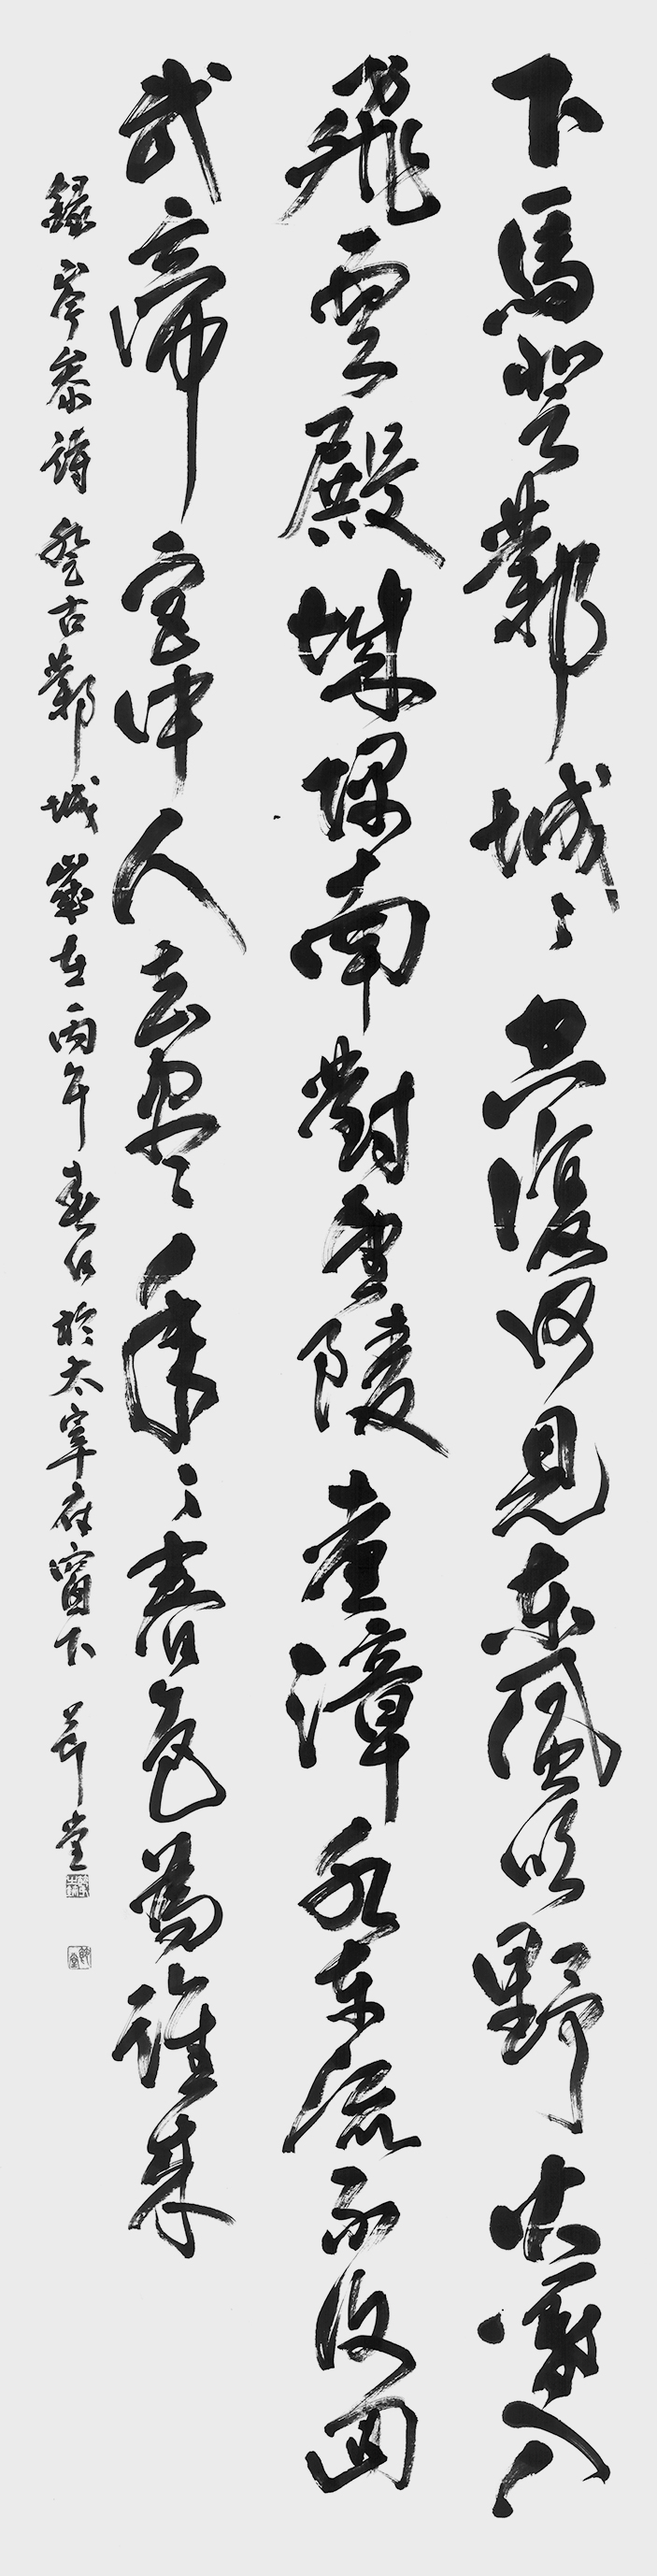 下馬登鄴城〻空復何見東風吹野火暮入
飛雲殿城隅南對望陵臺漳水東流不復回
武帝宮中人去盡年〻春色為誰來
録岑参詩 登古鄴城 歲在丙午春日於太宰府窗下 堂